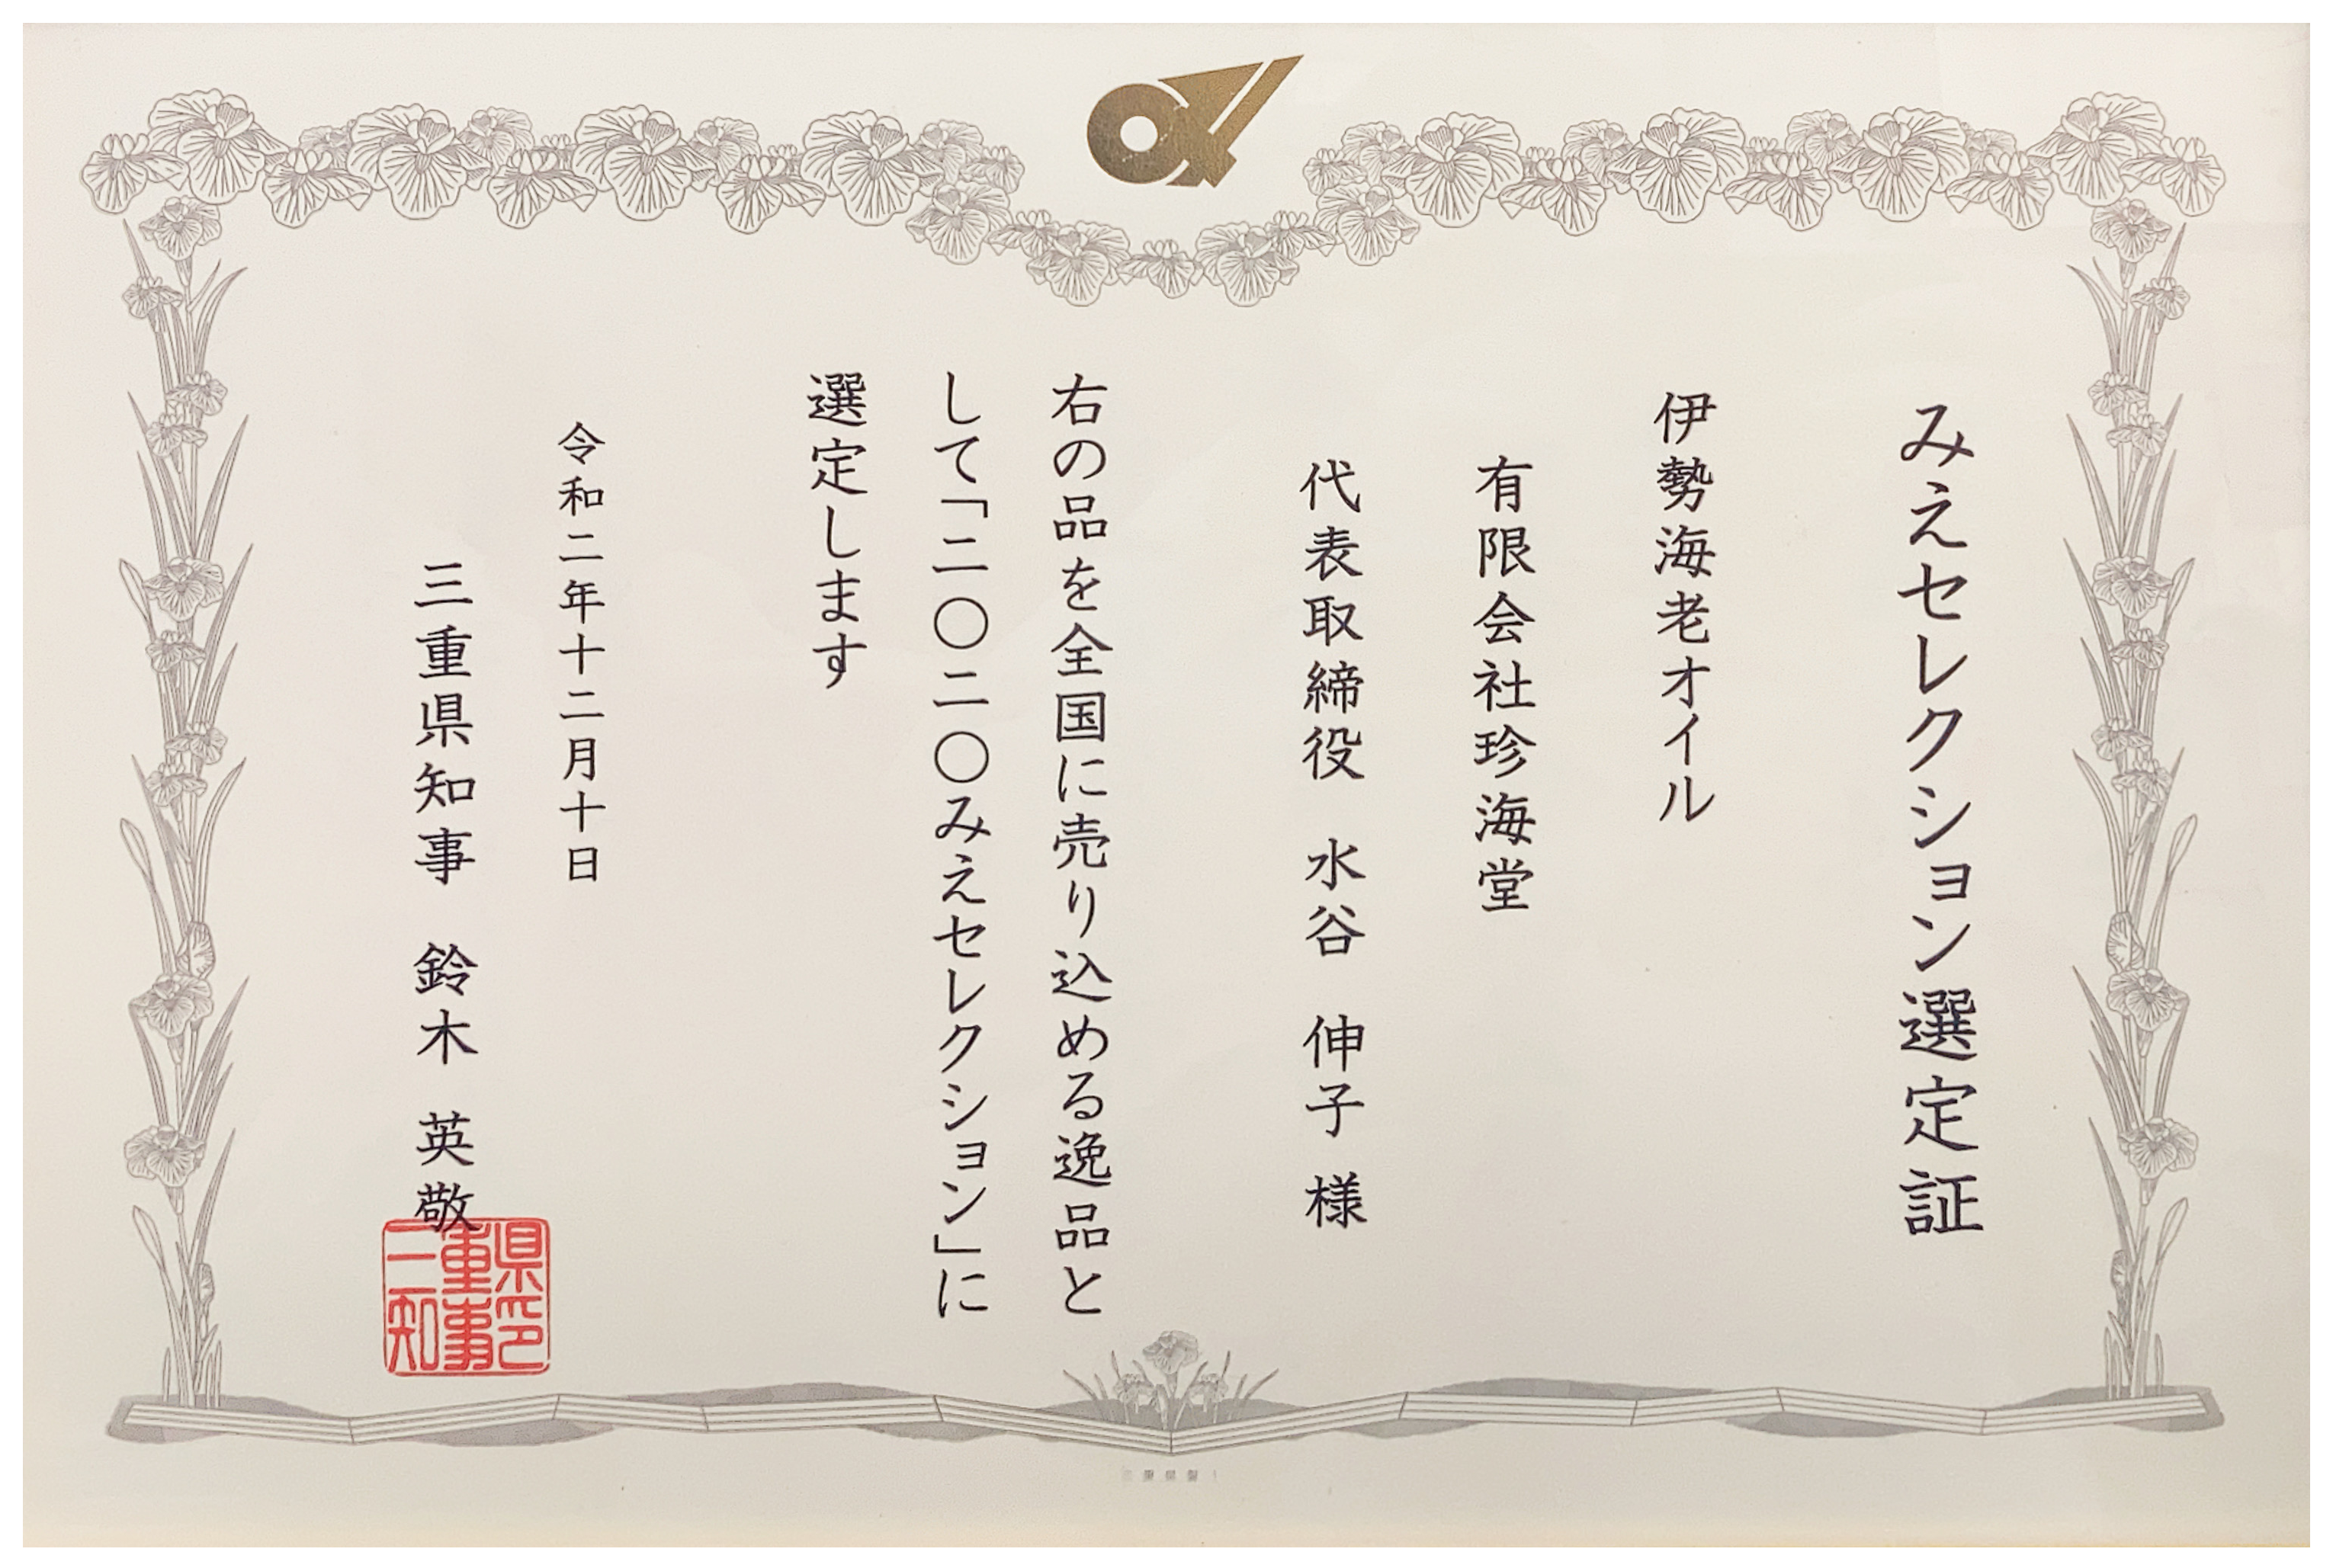 みえセレクション選定証
伊勢海老オイル
有限会社珍海堂
代表取締役 水谷 伸子 様
右の品を全国に売り込める逸品と
して「二〇二〇みえセレクション」に
選定します
令和二年十二月十日
三重県知事 鈴木 英敬
県印
重事
三知